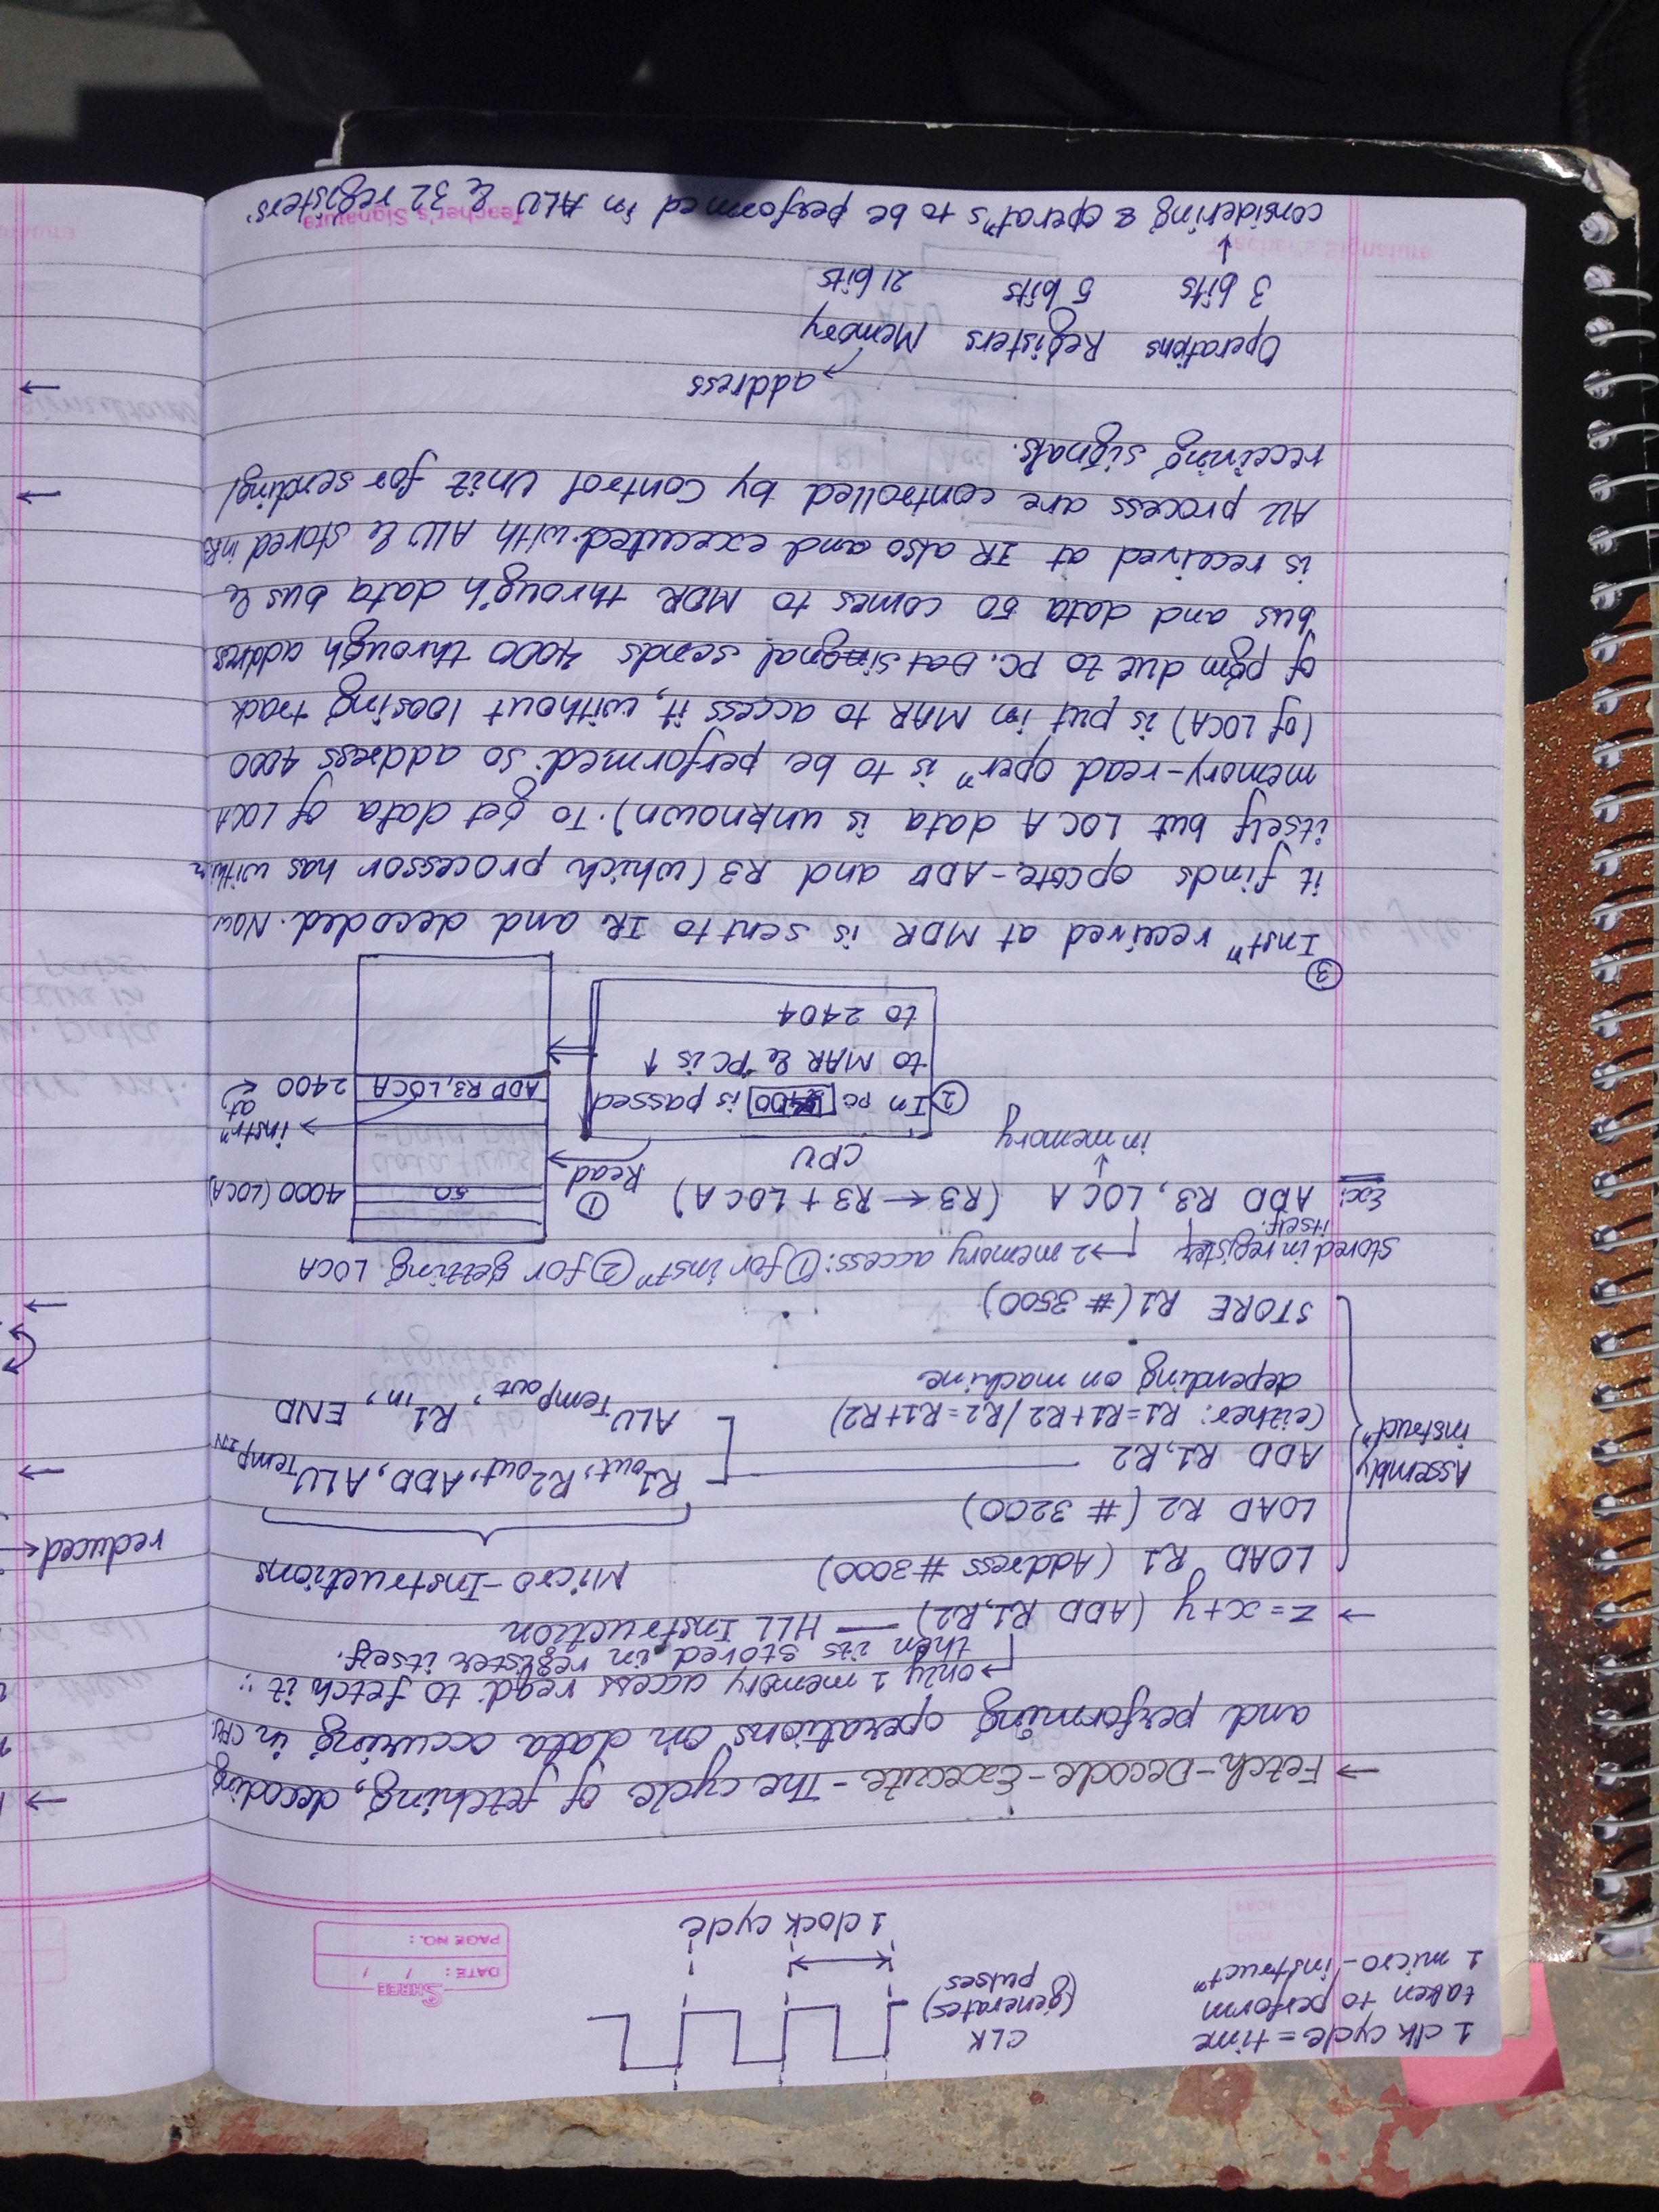 1 clk cycle = time
taken to perform
1 micro-instructⁿ
CLK
(generates)
pulses
1 clock cycle
SHREE
DATE: / /
PAGE NO.:
→ Fetch-Decode-Execute - The cycle of fetching, decoding
and performing operations on data occuring in CPU.
→ only 1 memory access reqd. to fetch it ∵
then its stored in register itself.
→ z = x+y (ADD R1, R2) — HLL Instruction
LOAD R1 (Address #3000)
Micro-Instructions
LOAD R2 (# 3200)
Assembly
instructⁿ
ADD R1, R2
R1out, R2out, ADD, ALUTempIN
(either: R1=R1+R2 / R2=R1+R2)
ALUTempout, R1in, END
depending on machine
STORE R1 (# 3500)
stored in register
itself.
→ 2 memory access: ① for instⁿ ② for getting LOCA
Ex: ADD R3, LOC A (R3 ← R3 + LOC A)
in memory
CPU
① Read
50
4000 (LOCA)
② In PC 2400 is passed
to MAR & PC is ↑
to 2404
→ instrⁿ
at
ADD R3, LOCA
2400
③
Instⁿ received at MDR is sent to IR and decoded. Now
it finds opcote - ADD and R3 (which processor has within
itself but LOC A data is unknown). To get data of LOCA
memory-read operⁿ is to be performed. so address 4000
(of LOCA) is put in MAR to access it, without loosing track
of pgm due to PC. Dat singnal sends 4000 through address
bus and data 50 comes to MDR through data bus &
is received at IR also and executed. with ALU & stored in R3
All process are controlled by Control Unit for sending/
receiving signals.
→ address
Operations Registers Memory
3 bits 5 bits 21 bits
considering 8 operatⁿs to be performed in ALU & 32 registers.
Teacher's Signature
reduced ←